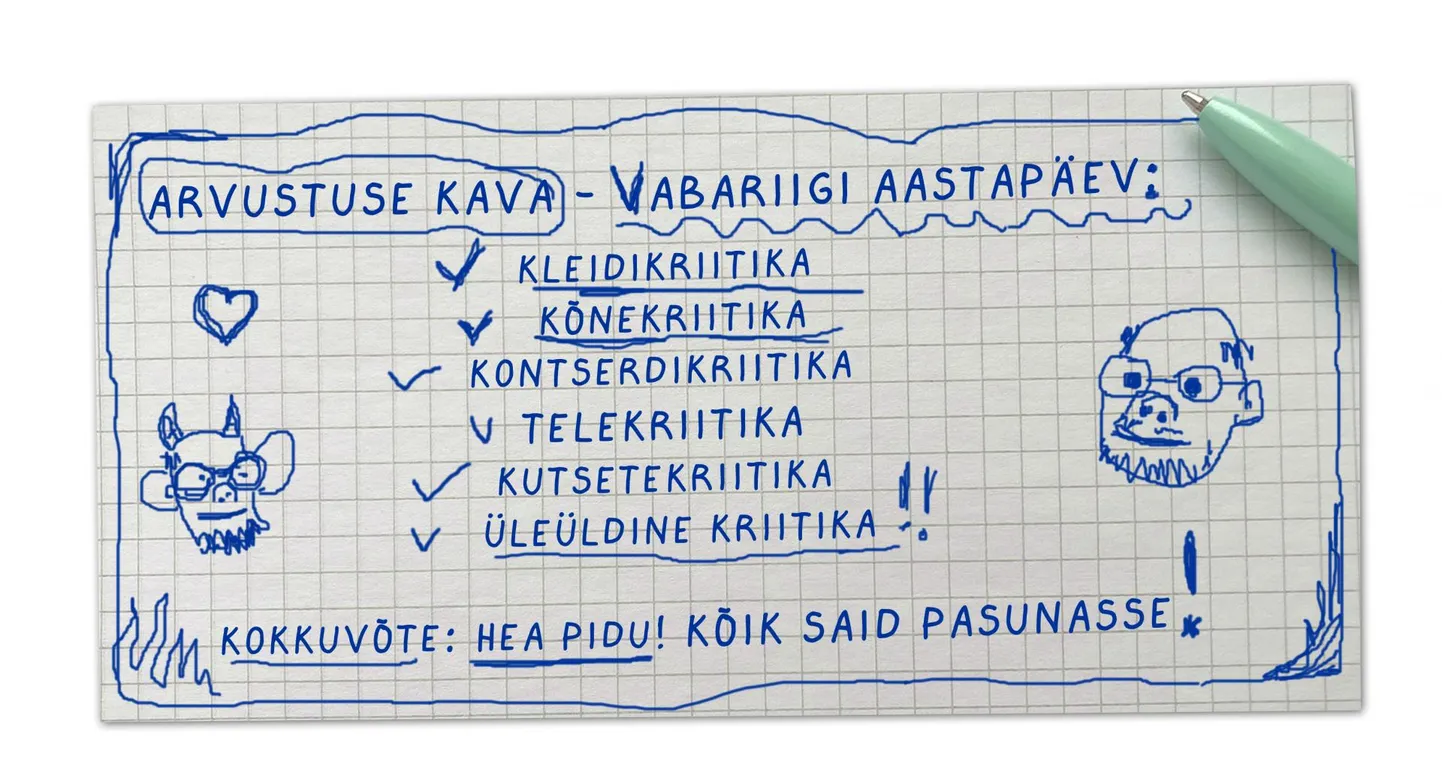 ARVUSTUSE KAVA - VABARIIGI AASTAPÄEV:
KLEIDIKRIITIKA
KÕNEKRIITIKA
KONTSERDIKRIITIKA
TELEKRIITIKA
KUTSETEKRIITIKA
ÜLEÜLDINE KRIITIKA !!
KOKKUVÕTE: HEA PIDU! KÕIK SAID PASUNASSE!